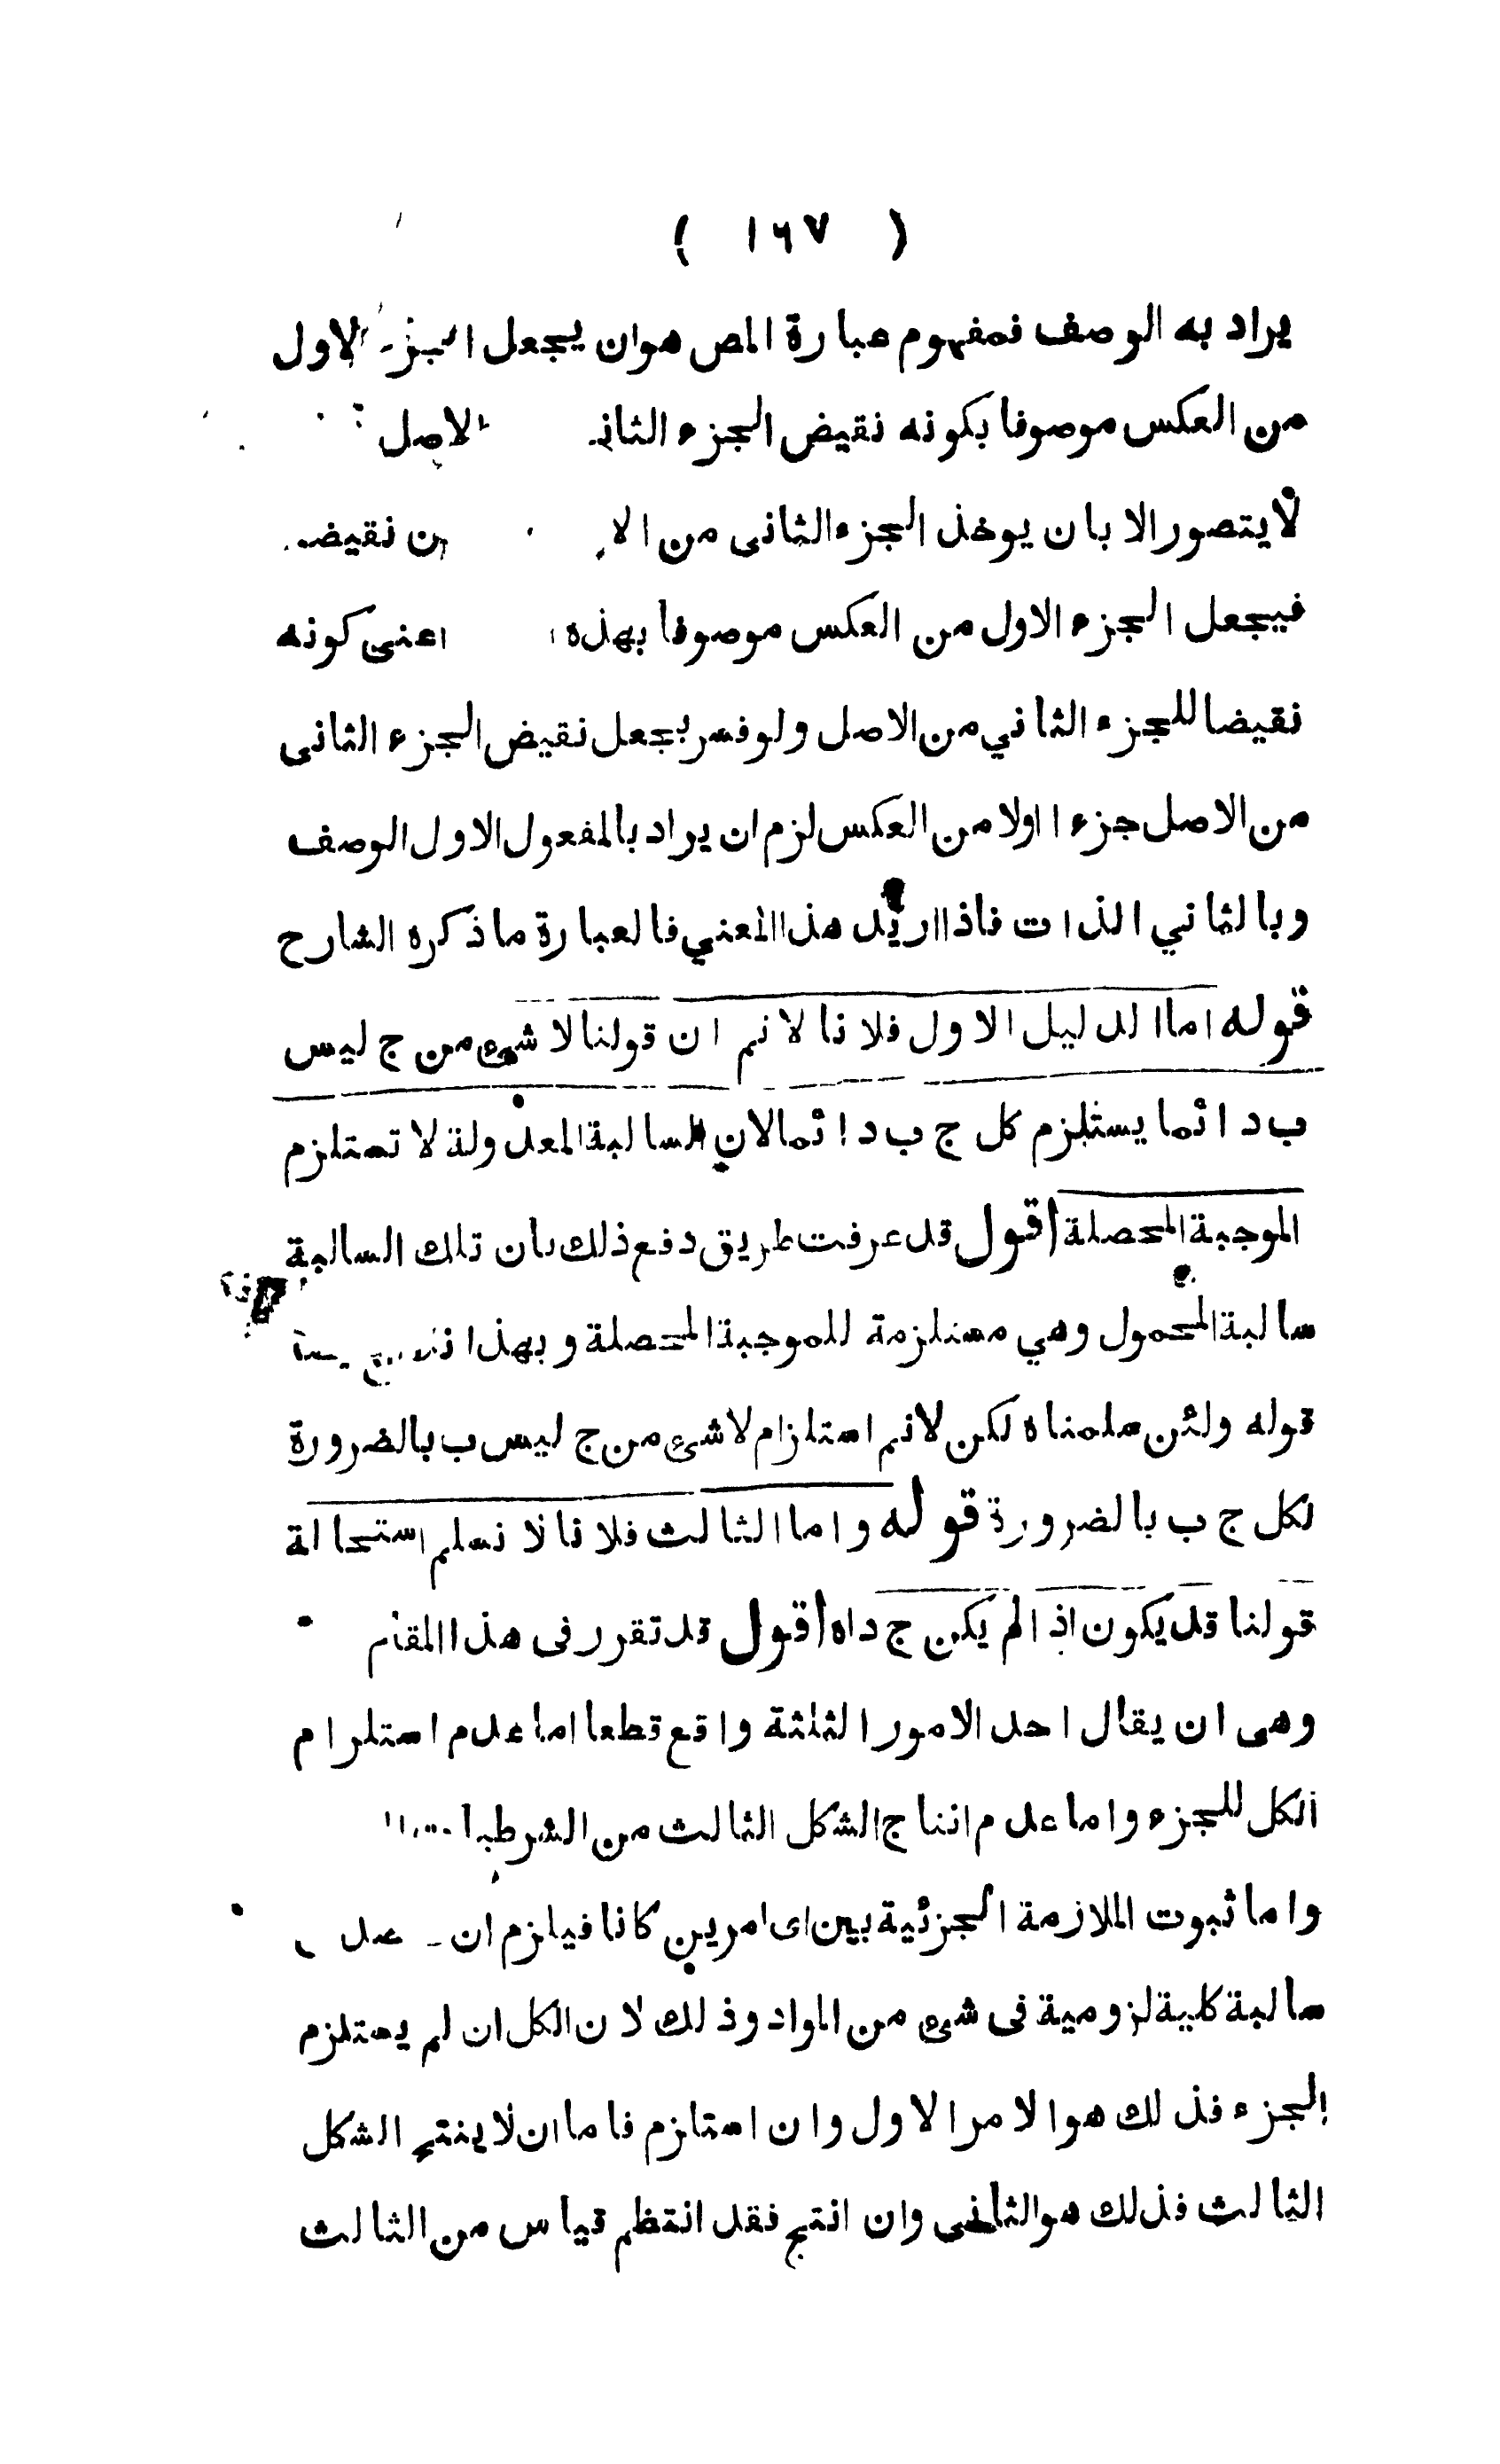 ( ١٦٧ )
يراد به الوصف فمفهوم عبارة المص هو ان يجعل الجزء الاول
من العكس موصوفا بكونه نقيض الجزء الثانى الاصل
لا يتصور الا بان يوخذ الجزء الثانى من نقيضه
فيجعل الجزء الاول من العكس موصوفا بهذه اعنى كونه
نقيضا للجزء الثاني من الاصل ولو فسر بجعل نقيض الجزء الثانى
من الاصل جزء ا اولا من العكس لزم ان يراد بالمفعول الاول الوصف
وبالثاني الذات فاذا اريد هذا المعني فالعبارة ما ذكره الشارح
قوله اما الدليل الاول فلانا لا نم ان قولنا لا شىء من ج ليس
ب دائما يستلزم كل ج ب دائما لان السالبة المعدولة لا تستلزم
الموجبة المحصلة اقول قد عرفت طريق دفع ذلك بان تلك السالبة
سالبة المحمول وهي مستلزمة للموجبة المحصلة و بهذا
قوله ولئن سلمناه لكن لا نم استلزام لا شىء من ج ليس ب بالضرورة
لكل ج ب بالضرورة قوله واما الثالث فلانا لا نسلم استحالة
قولنا قد يكون اذا لم يكن ج د اه اقول قد تقرر فى هذا المقام
وهى ان يقال احد الامور الثلثة واقع قطعا اما عدم استلزام
الكل للجزء واما عدم انتاج الشكل الثالث من الشرطيات
واما ثبوت الملازمة الجزئية بين اى امرين كانا فيلزم ان
سالبة كلية لزومية فى شىء من المواد وذلك لان الكل ان لم يستلزم
الجزء فذلك هو الامر الاول وان استلزم فاما ان لا ينتج الشكل
الثالث فذلك هو الثانى وان انتج فقد انتظم قياس من الثالث